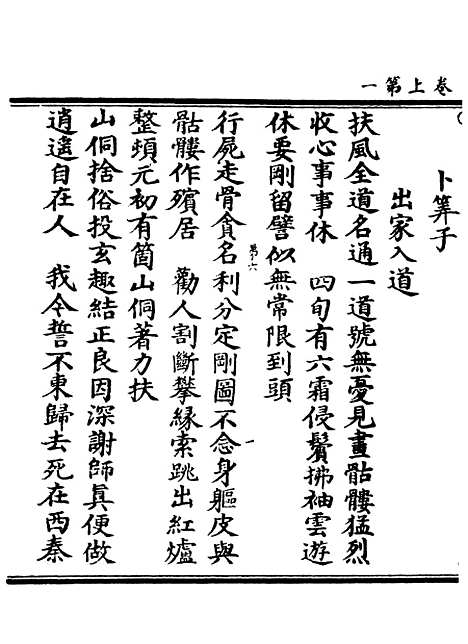 卷上第一
卜筭子
出家入道
扶風全道名通一道號無憂見畫骷髏猛烈
收心事事休　四旬有六霜侵鬢拂袖雲遊
休要剛留譬似無常限到頭
第六
行屍走骨貪名利分定剛圖不念身軀皮與
骷髏作殯居　勸人割斷攀緣索跳出紅爐
整頓元初有箇山侗著力扶
山侗捨俗投玄趣結正良因深謝師真便做
逍遙自在人　我今誓不東歸去死在西秦